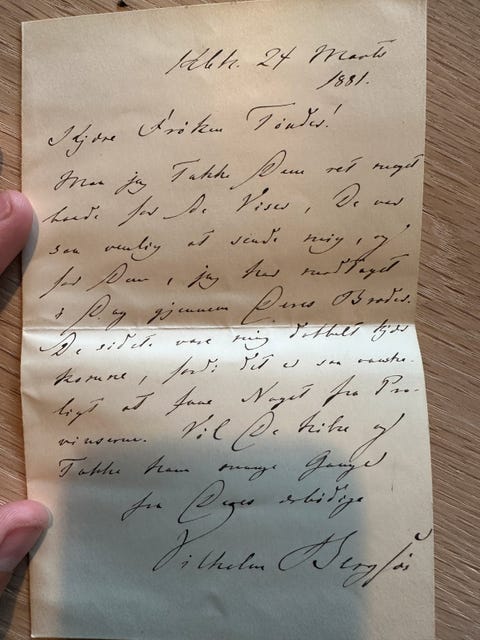 Kbh. 24 Marts
1881.
Kjære Frøken Tönder!
Maa jeg Takke Dem ret meget
baade for de Viser, De var
saa venlig at sende mig, og
for Dem, jeg har modtaget
i Dag gjennem Deres Broder.
De sidst vare mig dobbelt kjær
komne, fordi det er saa vanske-
ligt at faae Noget fra Pro-
vinserne. Vil De hilse og
Takke ham mange Gange
fra Deres ærbødige
Vilhelm Bergsöe